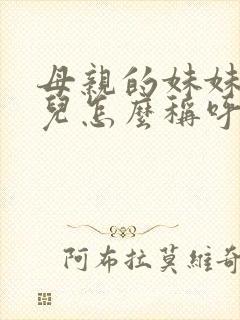 母親的妹妹
兒怎麼稱呼
阿布拉莫維奇